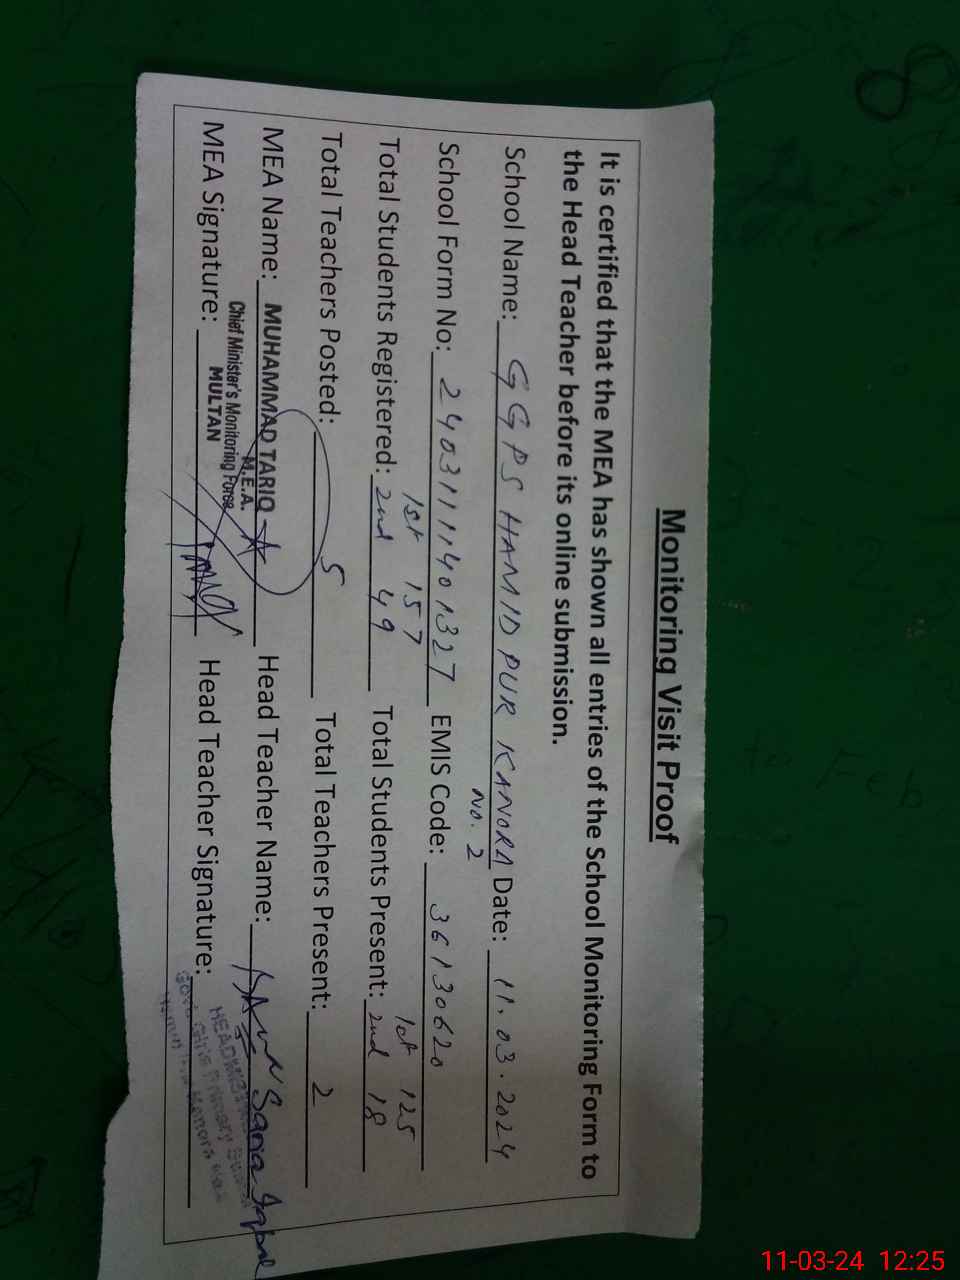 Monitoring Visit Proof
It is certified that the MEA has shown all entries of the School Monitoring Form to
the Head Teacher before its online submission.
School Name: GGPS HAMID PUR KANORA NO. 2 Date: 11.03.2024
School Form No: 2403111401327 EMIS Code: 36130620
Total Students Registered: 1st 157 2nd 49 Total Students Present: 1st 125 2nd 18
Total Teachers Posted: 5 Total Teachers Present: 2
MEA Name: MUHAMMAD TARIQ Head Teacher Name: Sania Iqbal
M.E.A.
Chief Minister's Monitoring Force
MULTAN
MEA Signature: Head Teacher Signature:
HEADMISTRESS
Govt. Girls Primary School
Kanora
to Feb
8
11-03-24 12:25